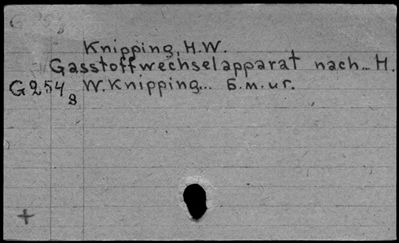 Knipping, H.W.
Gasstoffwechselapparat nach... H.
G254/8 W. Knipping... б.м.иг.